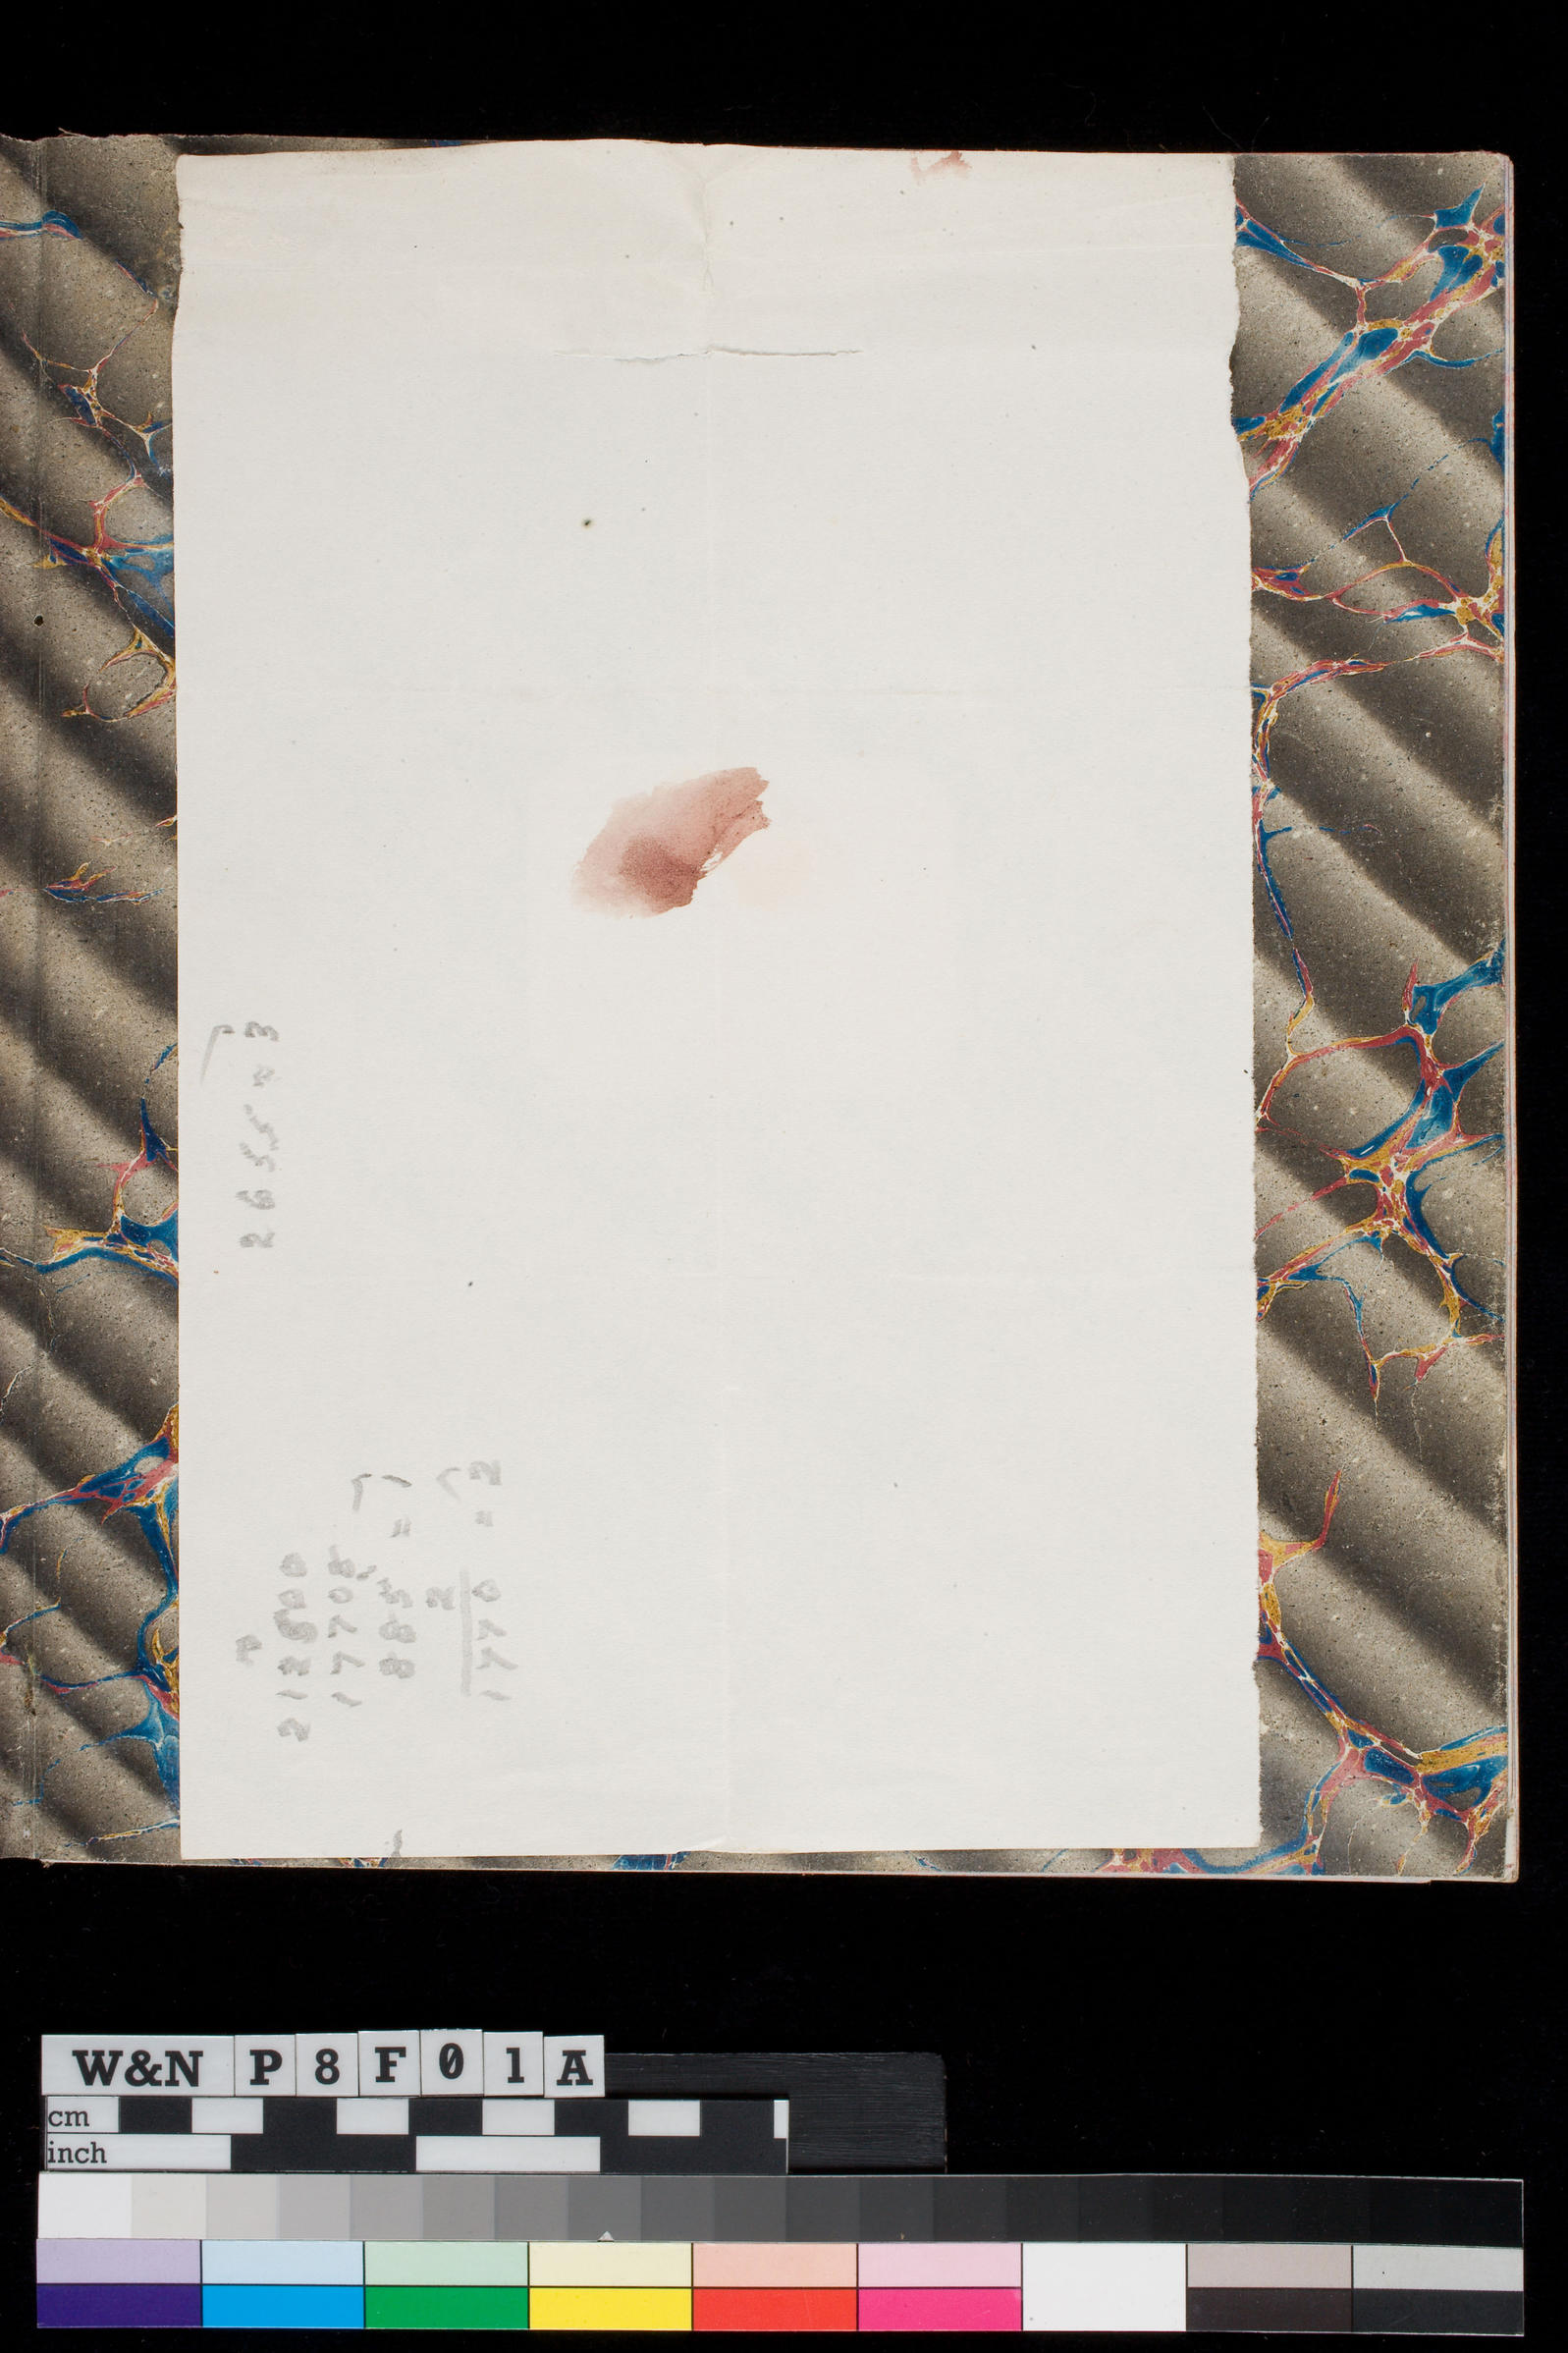 2655 = 3
212500
17708
885 = 1
2
1770 = 2
W&N P8F01A
cm
inch